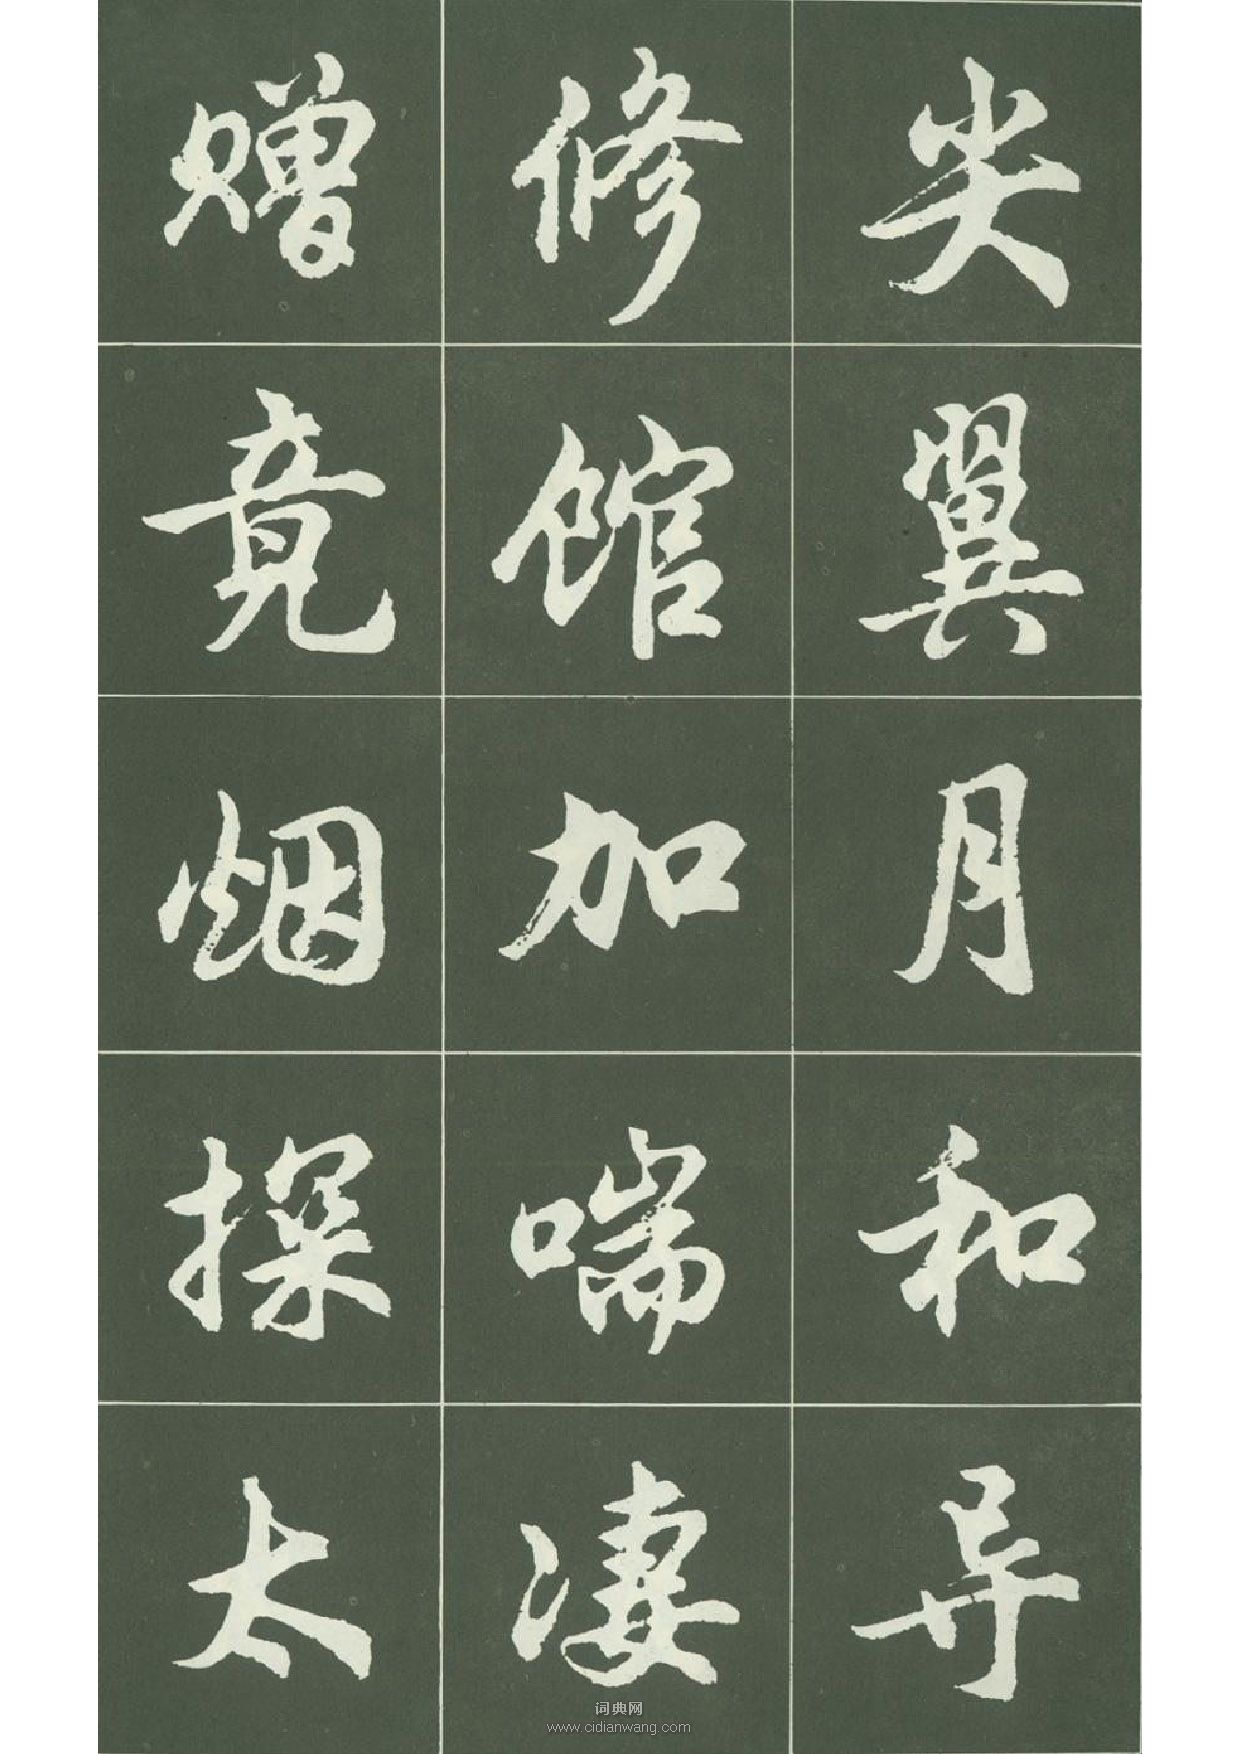 尖翼月和异
修馆加喘凄
赠竟烟探太
词典网
www.cidianwang.com